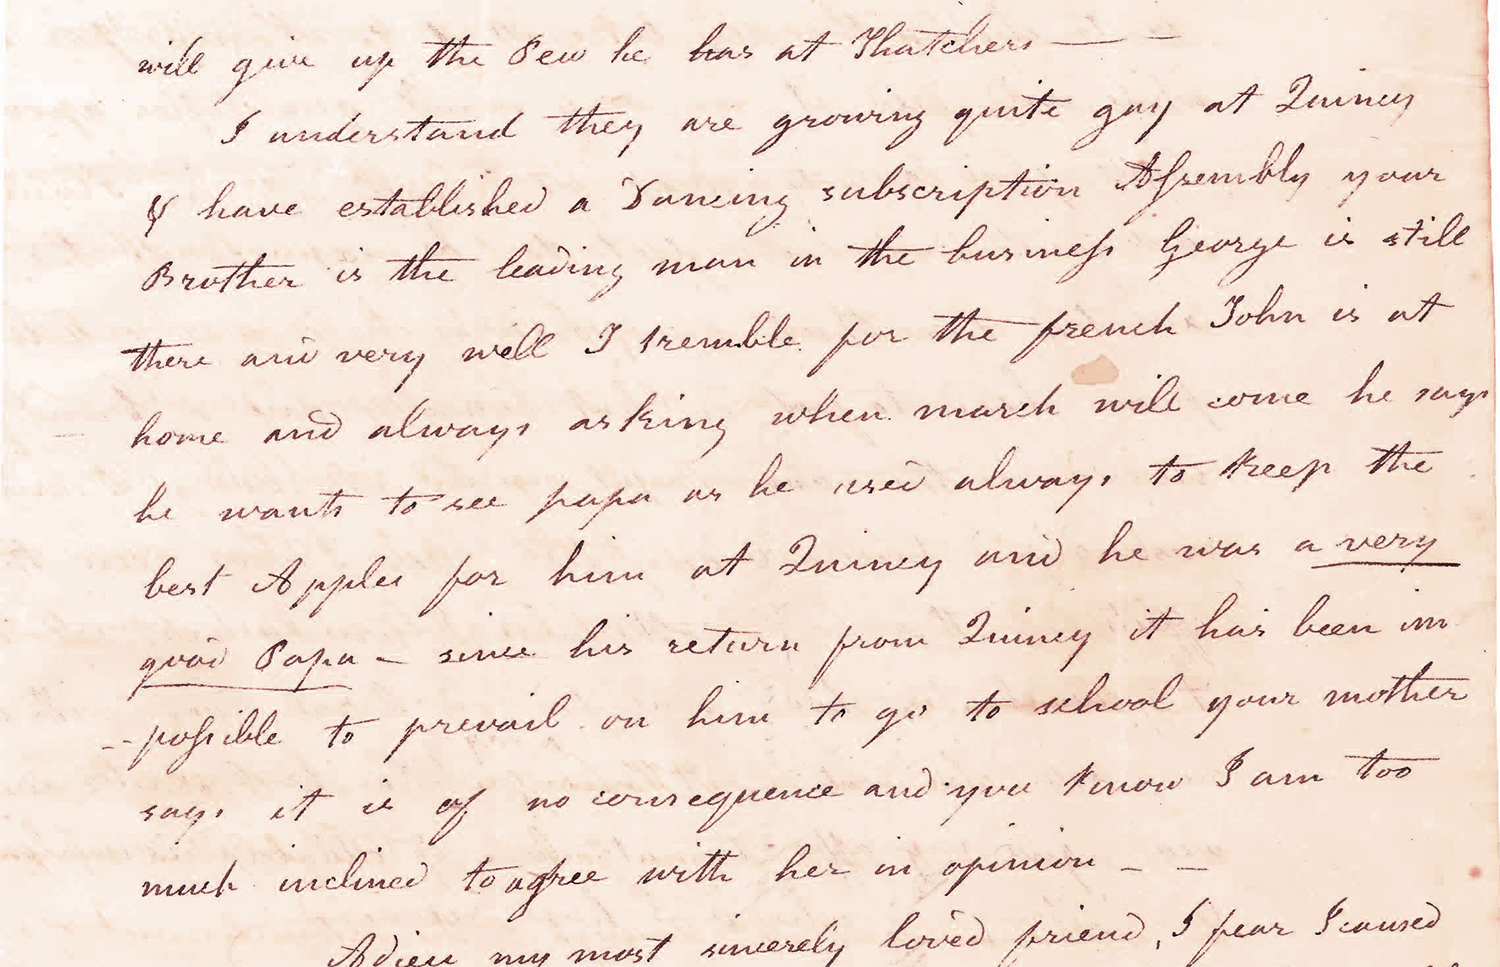 will give up the Pew he has at Thatchers — -
I understand they are growing quite gay at Quincy
& have established a Dancing subscription Assembly your
Brother is the leading man in the business George is still
there and very well I tremble for the french John is at
home and always asking when march will come he says
he wants to see papa as he used always to keep the
best Apples for him at Quincy and he was a very
good Papa — since his return from Quincy it has been im
--possible to prevail on him to go to school your mother
says it is of no consequence and you know I am too
much inclined to agree with her in opinion - -
Adieu my most sincerely loved friend, I fear I caused